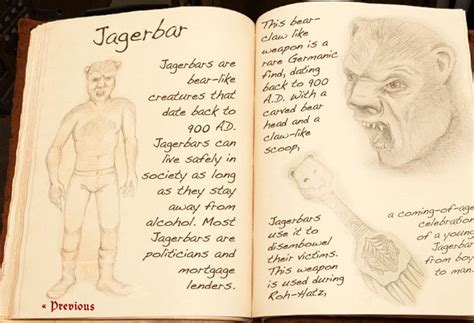 Jagerbar
Jagerbars are
bear-like
creatures that
date back to
900 A.D.
Jagerbars can
live safely in
society as long
as they stay
away from
alcohol. Most
Jagerbars are
politicians and
mortgage
lenders.
« Previous
This bear-
claw like
weapon is a
rare Germanic
find, dating
back to 900
A.D. With a
carved bear
head and a
claw-like
scoop,
Jagerbars
use it to
disembowel
their victims.
This weapon
is used during
Roh-Hatz,
a coming-of-age
celebration
of a young
Jagerbar from
boy to
man.